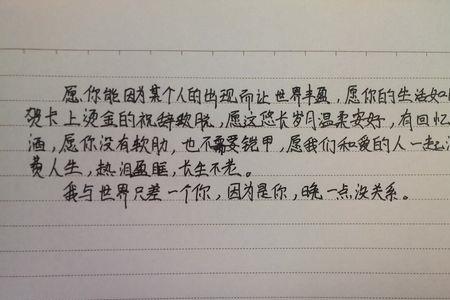 愿你能因为某个人的出现而让世界丰盈，愿你的生活如
贺卡上烫金的祝辞致脱，愿这悠长岁月温柔安好，有回忆
酒，愿你没有软肋，也不需要铠甲，愿我们和爱的人一起
费人生，热泪盈眶，长生不老。
我与世界只差一个你，因为是你，晚一点没关系。